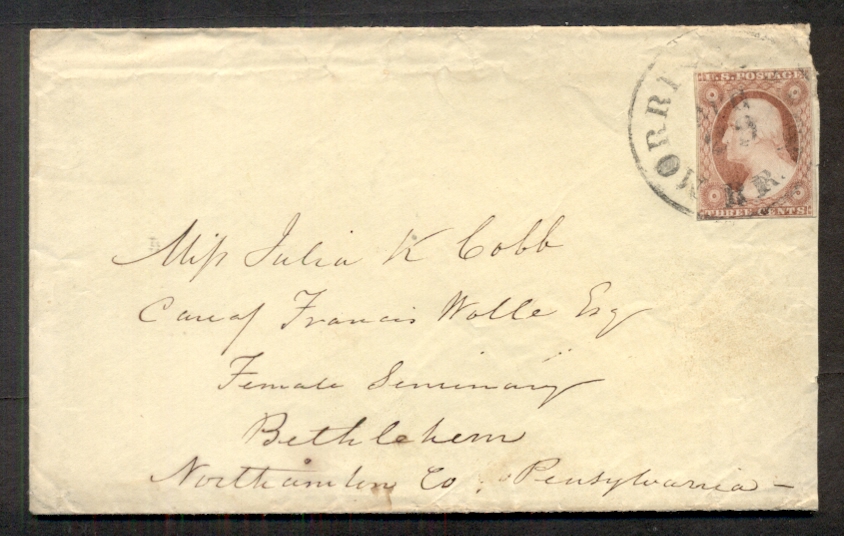 MORRI
R R.
U.S. POSTAGE
THREE CENTS
Miss Julia K Cobb
Care of Francis Wolle Esq
Female Seminary
Bethlehem
Northamton Co. Pensylvania -